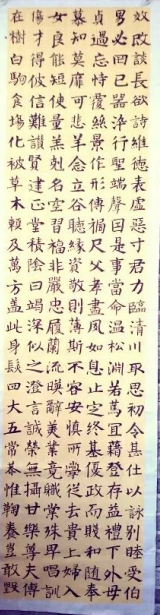 效改談長欲詩維德表虛惡寸君力臨清川取思初令甚仕以詠別睦受伯
男必罔己器染行聖端聲因是事當命温松淵若篤宜籍登存益禮下外母
貞過忘恃覆絲景作形傳禍尺父孝盡夙如息止定終基優政而賤和隨奉
慕知莫靡可悲羊念立谷聽緣資敬則薄斯不容安慎所學從去貴上婦入
女良能短使量羔剋名空習福非嚴忠履蘭流暎辭美業竟職棠殊卑唱訓
傷才得彼信難讚賢建正堂積陰曰竭深似之澄言誠榮無攝甘樂尊夫傅
在樹白駒食場化被草木賴及萬方蓋此身髮四大五常恭惟鞠養豈敢毀